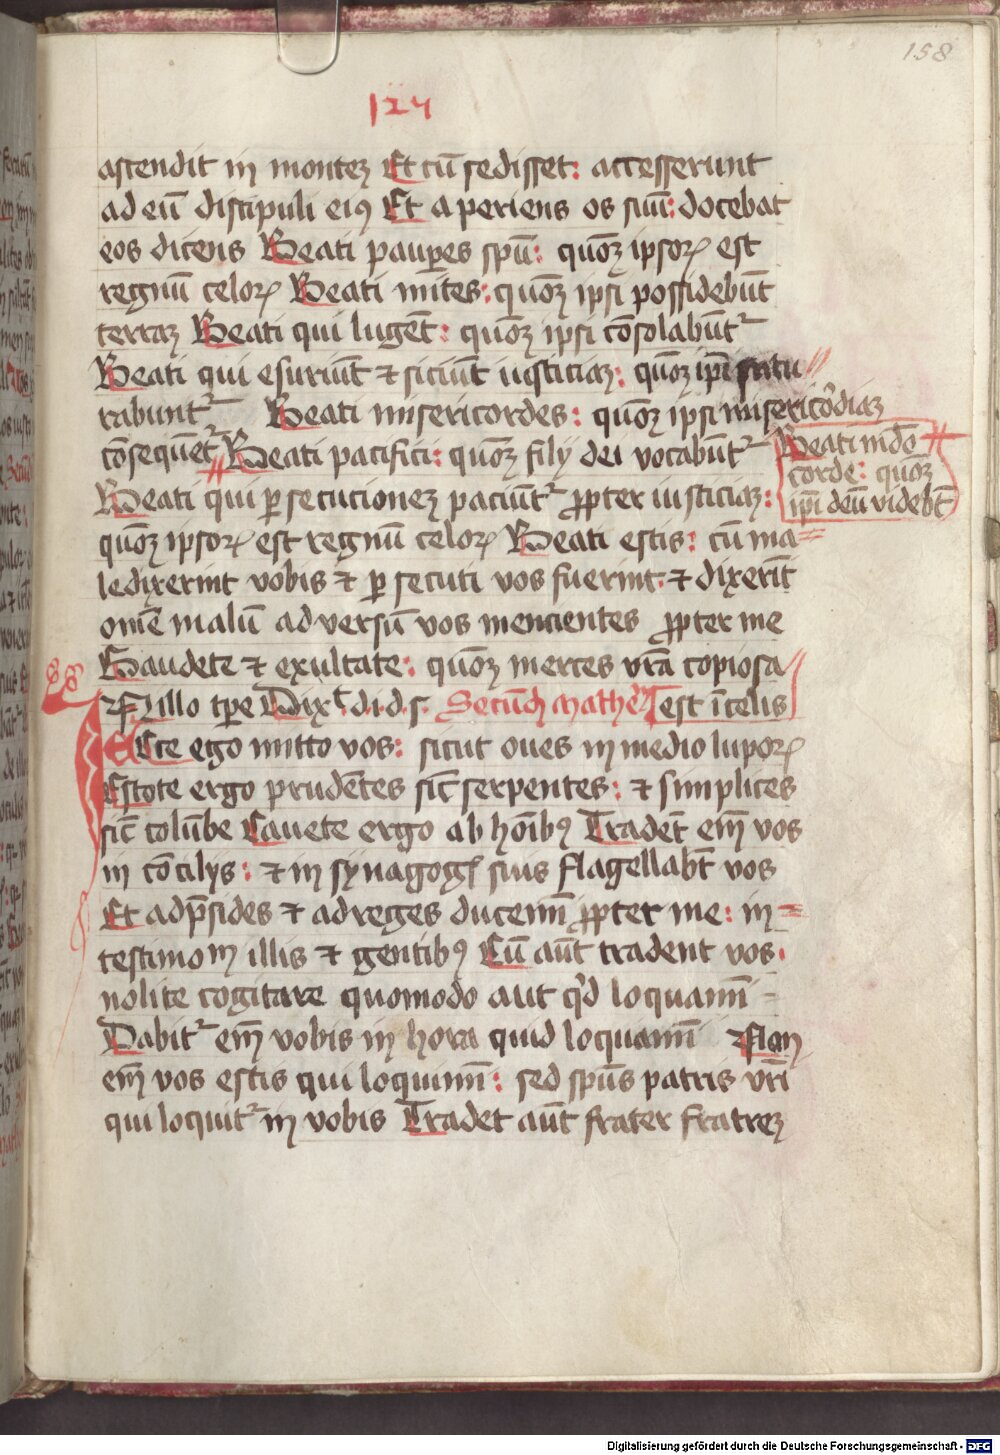 158
124
ascendit in monteʒ Et cū sedisset: accesserunt
ad eū discipuli eiꝰ Et aperiens os suū: docebat
eos dicens Beati paupes spū: quōʒ ipsoꝝ est
regnū celoꝝ Beati mites: quōʒ ipsi possidebūt
terraʒ Beati qui lugēt: quōʒ ipsi cōsolabūtᷣ
Beati qui esuriūt ⁊ siciūt iusticiaʒ: quōʒ ipi satu//
rabuntᷣ Beati misericordes: quōʒ ipsi misericōdiaʒ
cōsequētᷣ Beati pacifici: quōʒ filij dei vocabūtᷣ
Beati mūdo
corde: quōʒ
ipi deū videbūt
Beati qui ꝑsecucioneʒ paciūtᷣ ꝓpter iusticiaʒ:
quōʒ ipsoꝝ est regnū celoꝝ Beati estis: cū ma=
ledixerint vobis ⁊ ꝑsecuti vos fuerint: ⁊ dixerīt
omē malū adversū vos mencientes ꝓpter me
Gaudete ⁊ exultate: quōʒ merces vr̄a copiosa
est ī celis
88
In illo tp̄e Dixᵗ d.i.d.s. Secūdʒ Mathēʒ
Ecce ego mitto vos: sicut oues in medio lupoꝝ
Estote ergo prudētes sic̄ serpentes: ⁊ simplices
sic̄ colūbe Cauete ergo ab hōibꝰ Tradēt em̄ vos
in cōcilijs: ⁊ in synagogꝭ suis flagellabt̄ vos
Et ad p̄sides ⁊ ad reges ducemī ꝓpter me: in=
testimoīm illis ⁊ gentibꝰ Cū aūt tradent vos.
nolite cogitare quomodo aut qͥd loquamī
Dabitᷣ em̄ vobis in hora quid loquamī Non
em̄ vos estis qui loquimī: sed spūs patris vrī
qui loquitᷣ in vobis Tradet aūt frater fratreʒ
Digitalisierung gefördert durch die Deutsche Forschungsgemeinschaft - DFG